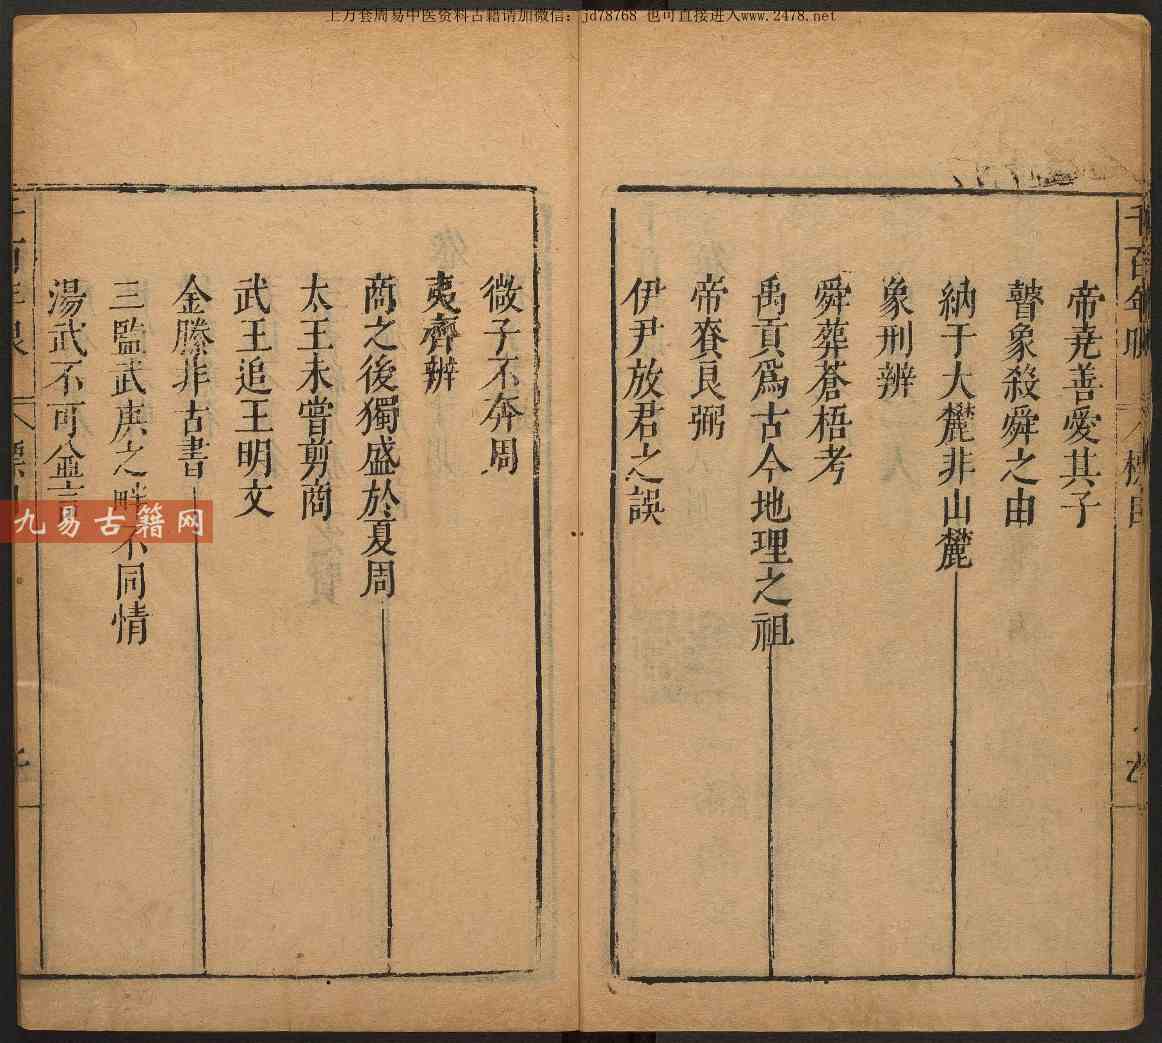 上万套周易中医资料古籍请加微信：jd78768 也可直接进入www.2478.net
千百年眼 標目
帝堯善愛其子
瞽象殺舜之由
納于大麓非山麓
象刑辨
舜葬蒼梧考
禹貢爲古今地理之祖
帝賚良弼
伊尹放君之誤
微子不奔周
夷齊辨
商之後獨盛於夏周
太王未嘗剪商
武王追王明文
金縢非古書
三監武庚之畔不同情
湯武不可並言
九易古籍网